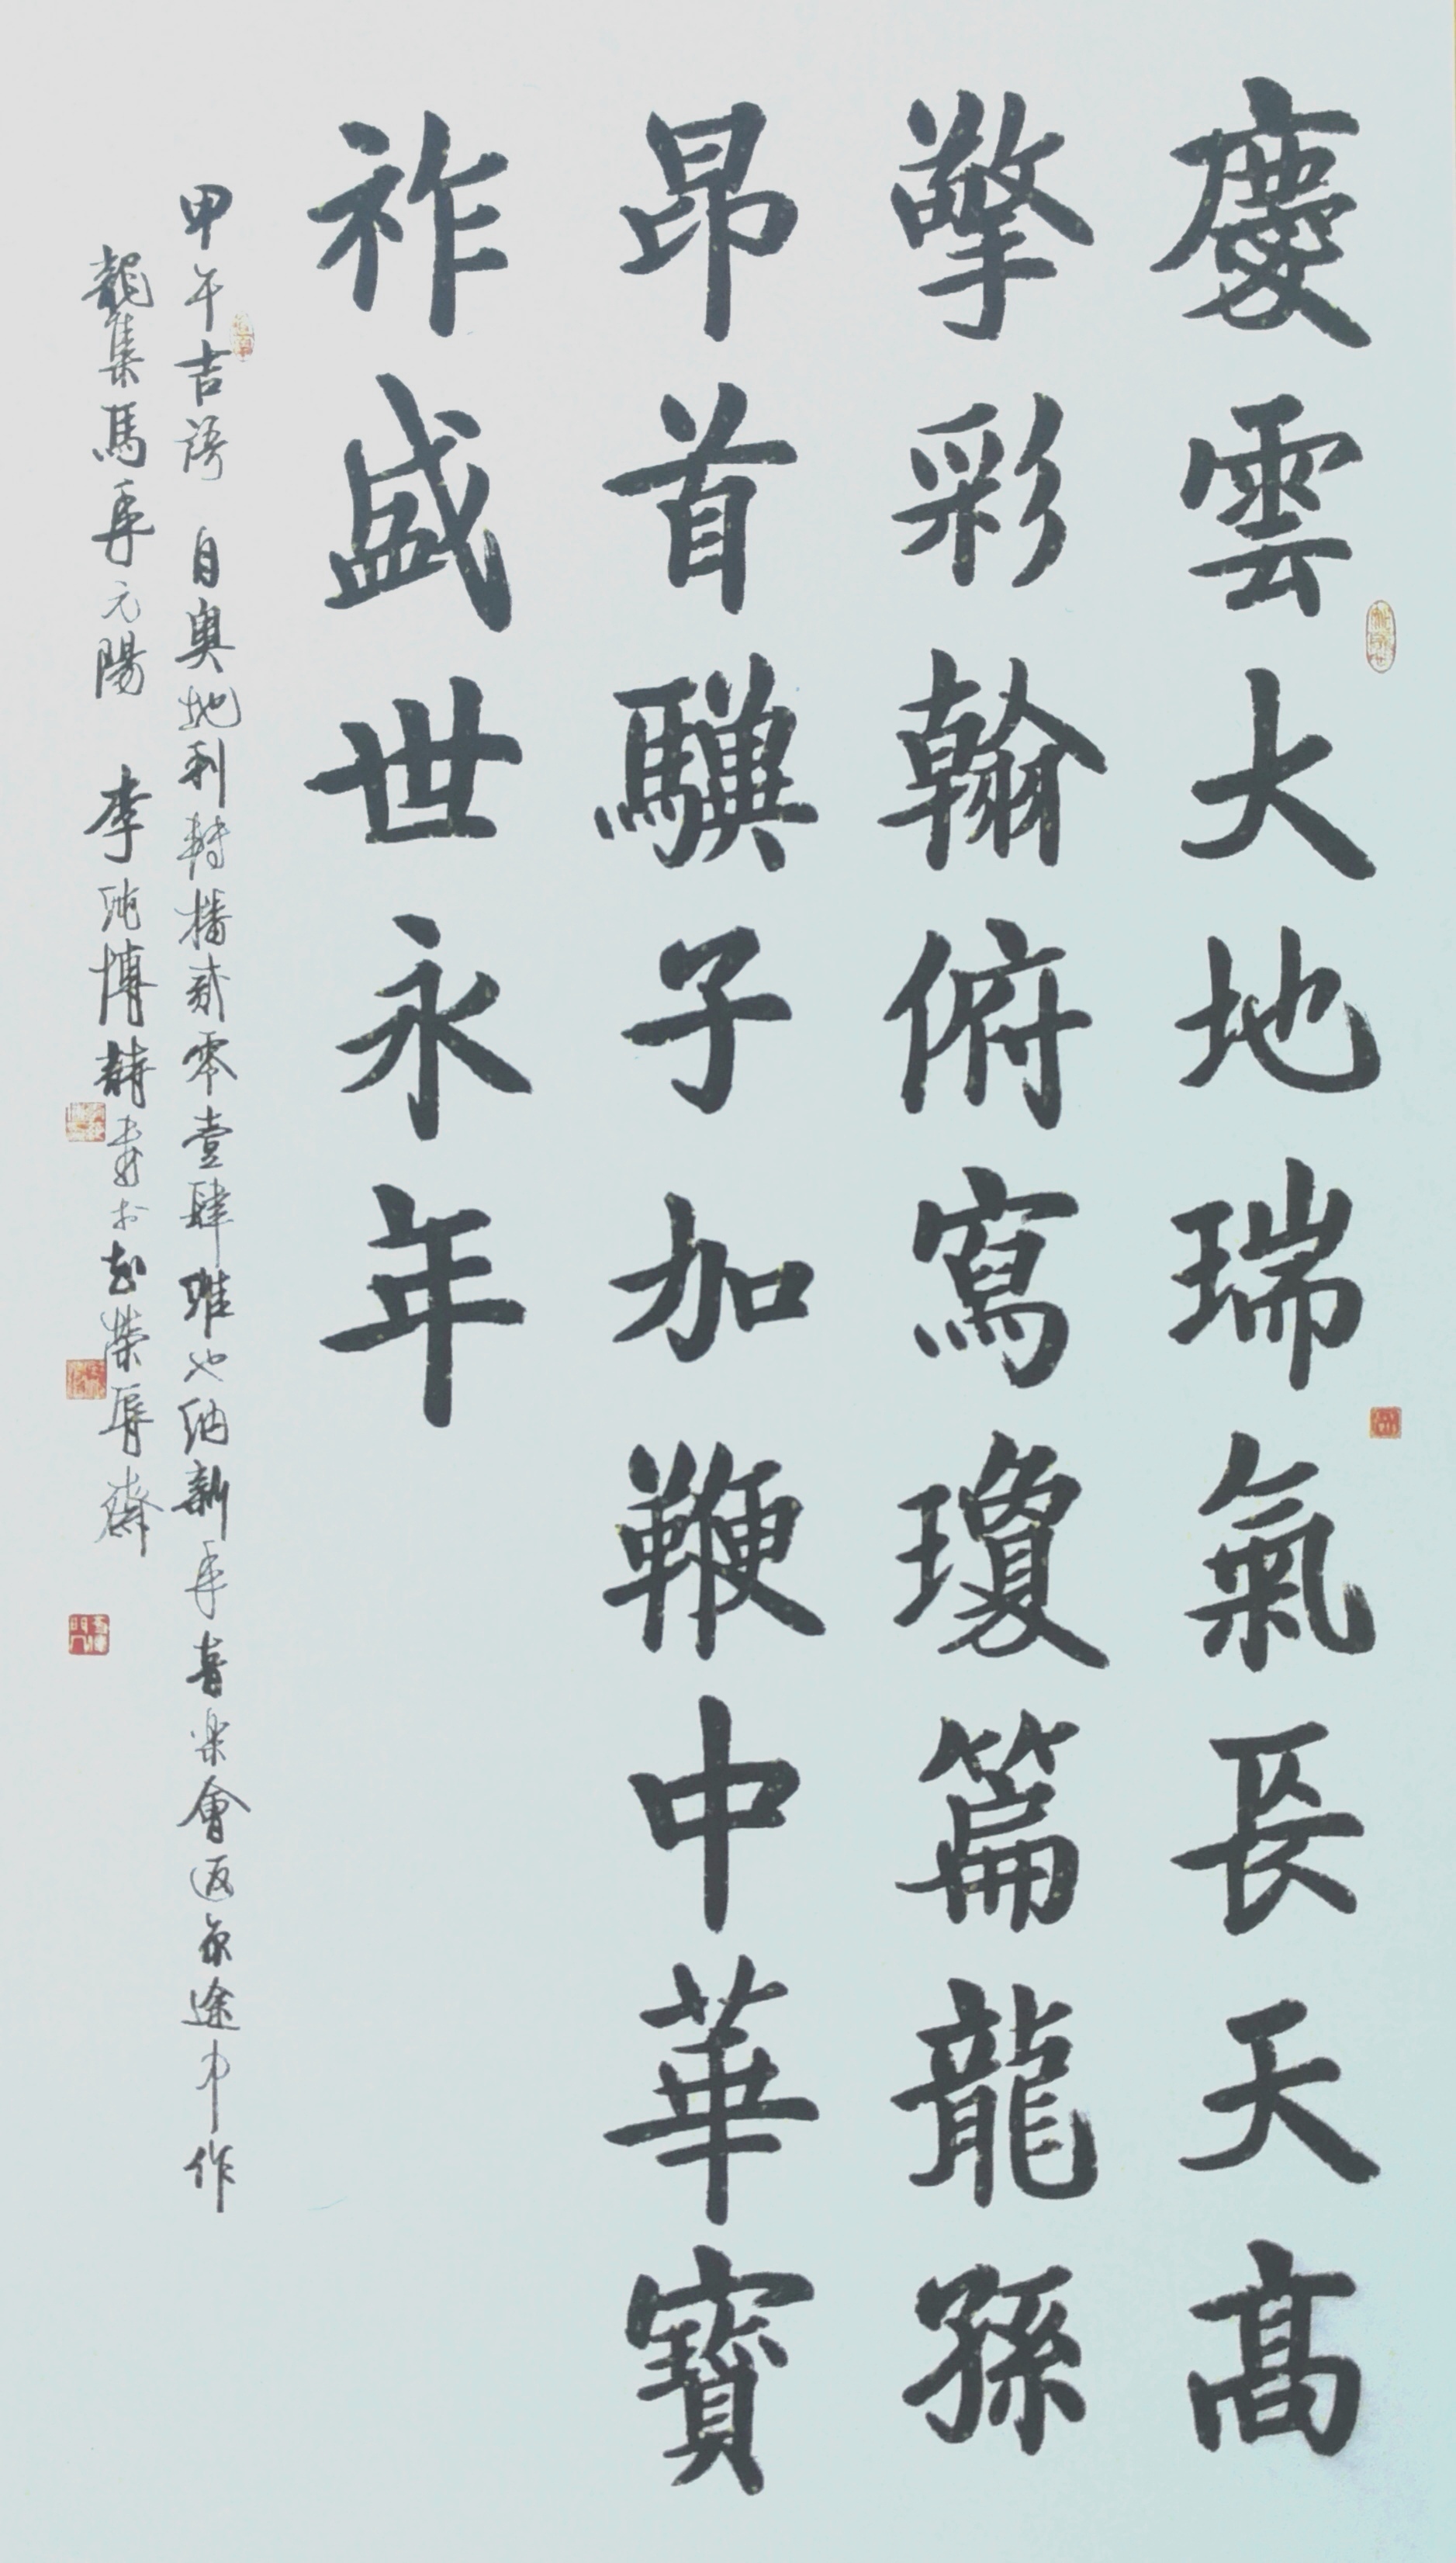 慶雲大地瑞氣長天高
擎彩翰俯寫瓊篇龍孫
昂首驥子加鞭中華寶
祚盛世永年
甲午吉語 自奥地利轉播貳零壹肆維也納新年音楽會返京途中作
龍集馬年元陽 李純博 書於 榮辱齋